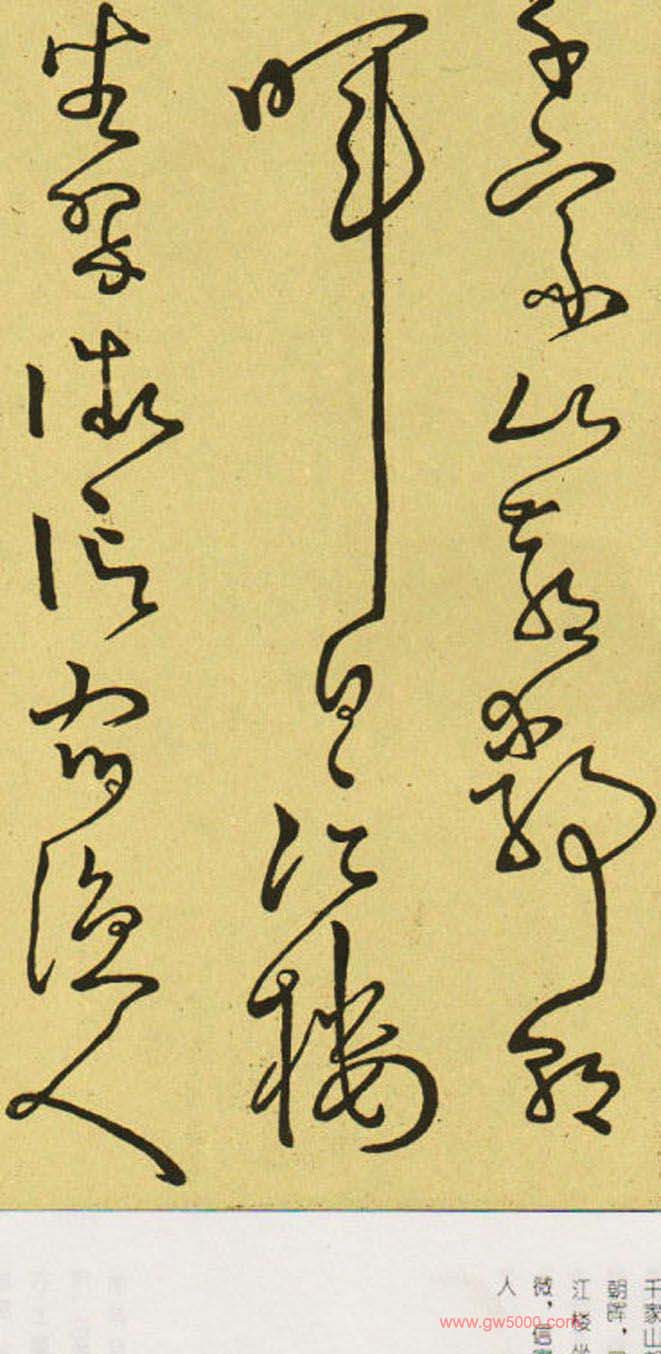 千家山郭靜朝
暉日〻江樓
坐翠微信宿漁人
千家山
朝晖，
江楼坐
微，信
人
www.gw5000.com